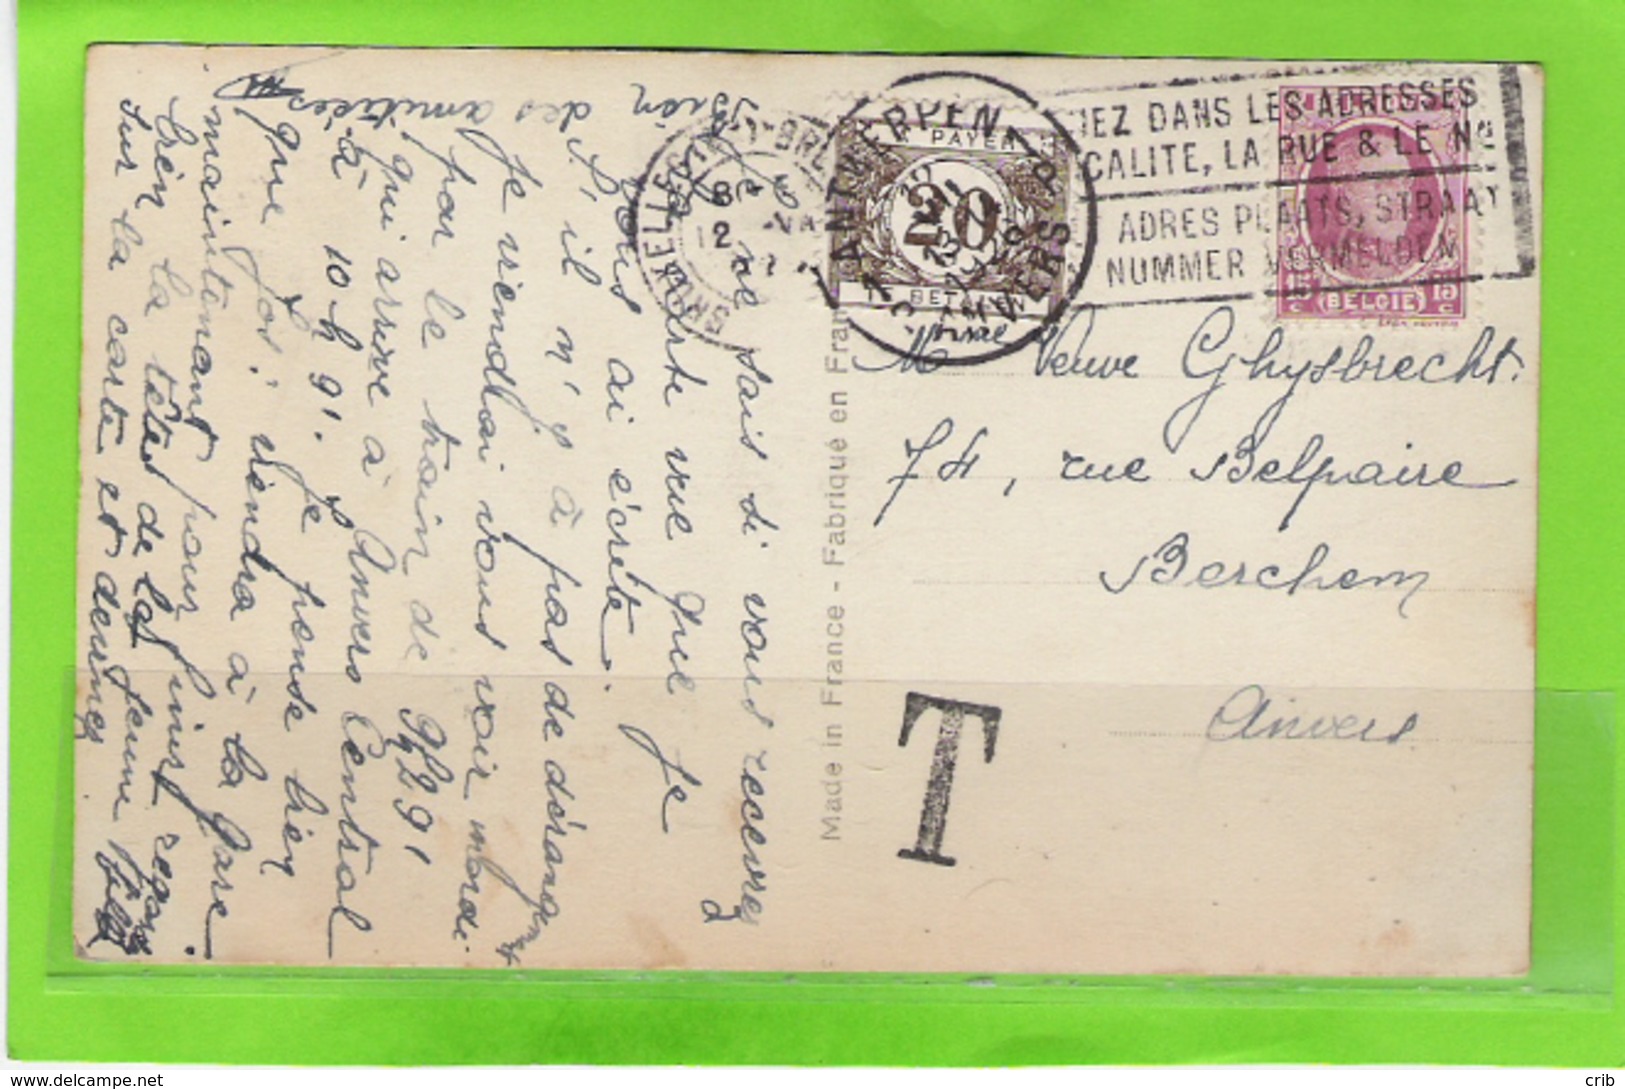 Je ne sais si vous recevrez
la carte vue que je
vous ai écrite.
S'il n'y à pas de dérangem
Je viendrai vous voir mardi
par le train de
qui arrive à Anvers Central
à 10 h 91. Je pense bien
que Jos: viendra à la gare.
maintenant pour finir
bien la tête de la femme
sur la carte et devinez
Bien
des amitiées
ANTWERPEN
ANVERS
BRUXELLES
8
12
A PAYER
20
TE BETALEN
IEZ DANS LES ADRESSES
CALITE, LA RUE & LE No
ADRES PLAATS, STRAAT
NUMMER VERMELDEN
15c (BELGIE) 15c
Veuve Ghysbrecht.
74, rue Belpaire
Berchem
Anvers
T
Made in France - Fabriqué en Fran
crib